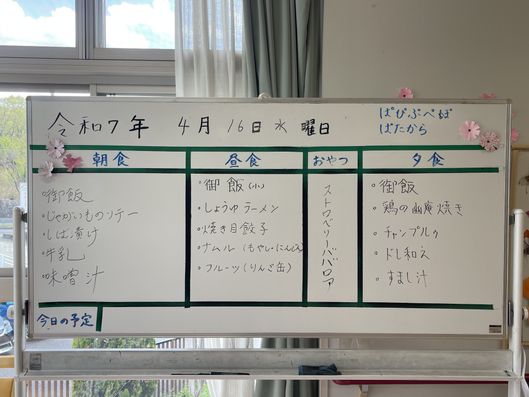 令和7年 4月 16日 水 曜日
ぱぴぷぺぽ
ぱたから
朝食
・御飯
・じゃがいものソテー
・しば漬け
・牛乳
・味噌汁
昼食
・御飯(小)
・しょうゆラーメン
・焼き目餃子
・ナムル(もやし・にんじん)
・フルーツ(りんご缶)
おやつ
ストロベリーババロア
夕食
・御飯
・鶏の幽庵焼き
・チャンプルゥ
・ドレ和え
・すまし汁
今日の予定